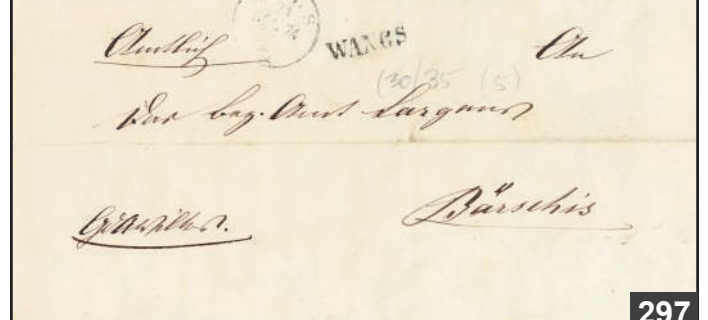 Amtlich WANGS An
(30/35 (5)
Das bez. Amt Sargans
Bärschis
297